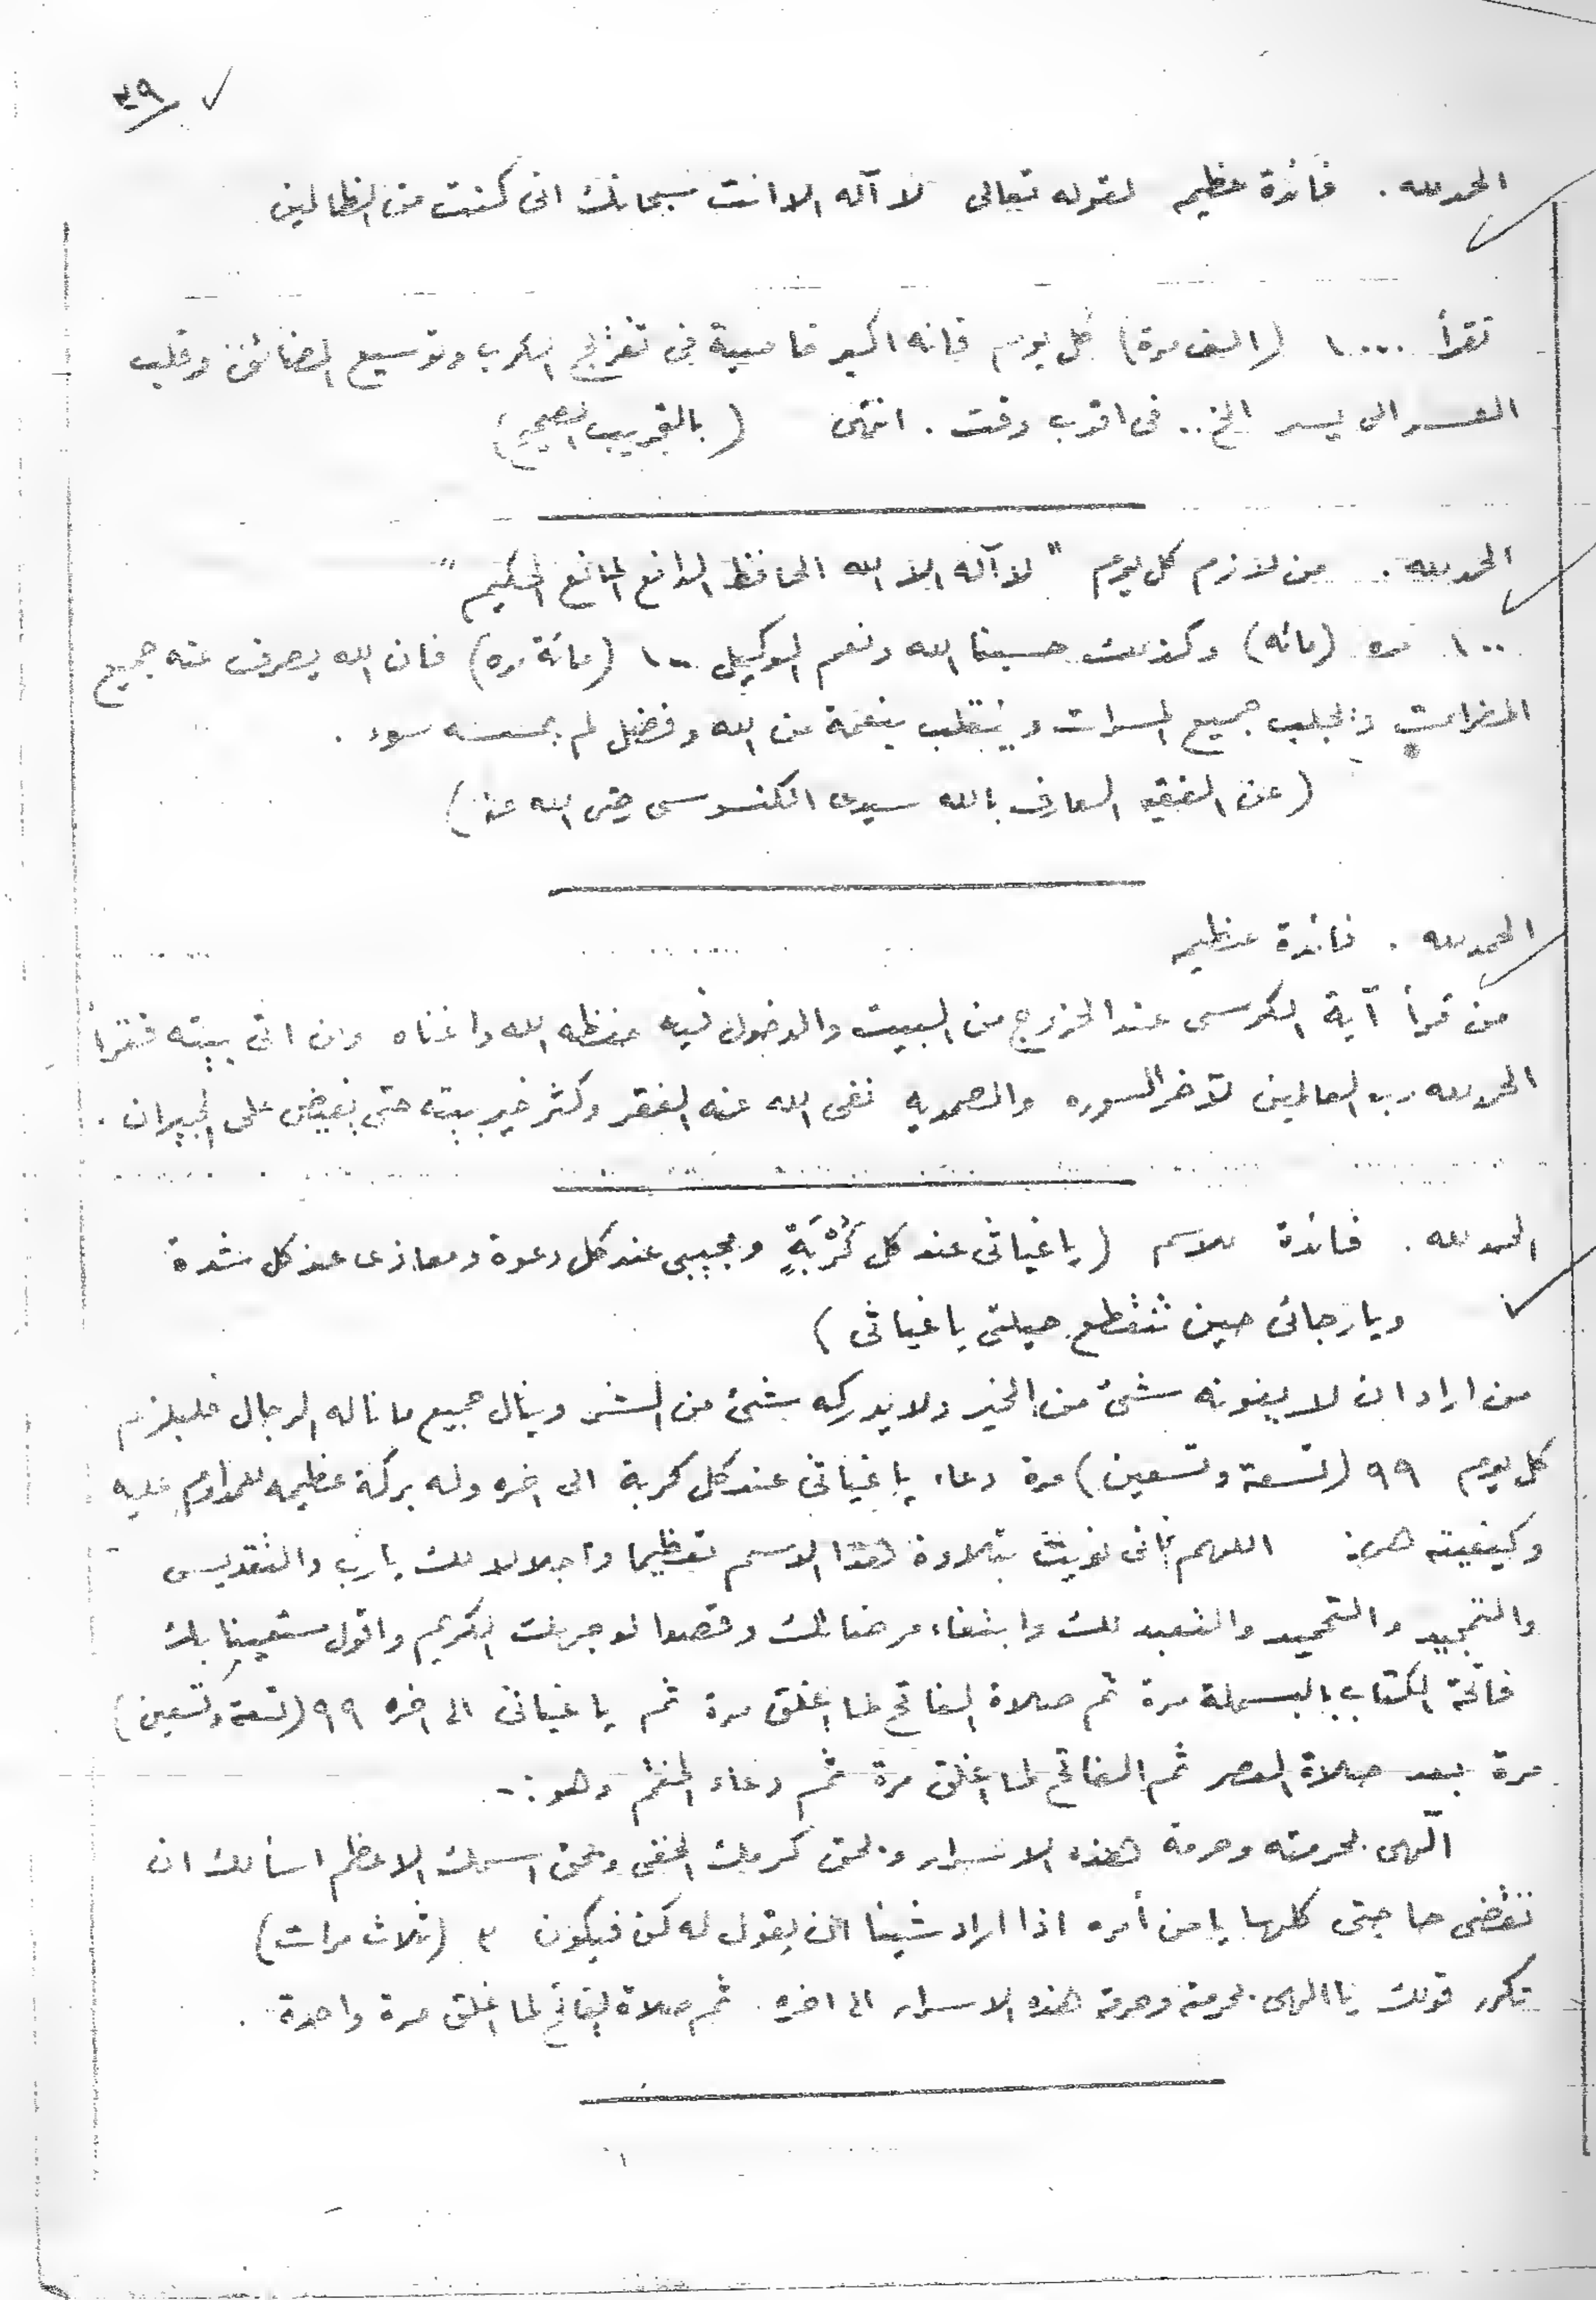 ٣٩
الحمد لله . فائدة عظيمه لقوله تعالى لا آله الا انت سبحانك انى كنت من الظالمين
تقرأ ١٠٠٠ (الف مرة) كل يوم فانه اكبر خاصية فى تفريج الكرب وتوسيع المضائق وقلب
العسر الى يسر الخ .. فى اقرب وقت . انتهى (بالتجريب الصحيح)
الحمد لله . من لازم كل يوم " لا آله الا الله الحافظ الدافع المانع الحكيم "
١٠٠ مره (مائه) وكذلك حسبنا الله ونعم الوكيل ١٠٠ (مائة مره) فان الله يصرف عنه جميع
المضرات ويجلب جميع المسرات وينقلب بنعمة من الله وفضل لم يمسسه سوء .
(عن الفقيه العارف بالله سيدى الكنسوسى رضى الله عنه)
الحمد لله . فائدة عظيمه
من قرأ آية الكرسى عند الخروج من البيت والدخول فيه حفظه الله واغناه ومن اتى بيته فقرأ
الحمد لله رب العالمين لآخر السوره والصمديه نفى الله عنه الفقر وكثر خير بيته حتى يفيض على الجيران .
الحمد لله . فائدة للاسم (ياغياثى عند كل كُرْبَةٍ ومجيبى عند كل دعوة ومعاذى عند كل شدة
ويارجائى حين تنقطع حيلتى ياغياثى )
من اراد ان لا يفوته شئ من الخير ولا يدركه شئ من الشر وينال جميع ما ناله الرجال فليلزم
كل يوم ٩٩ (تسعة وتسعين) مرة دعاء ياغياثى عند كل كربة الى اخره وله بركة عظيمه للمداوم عليه
وكيفيته هى: اللهم انى نويت بتلاوة هذا الاسم تعظيما واجلالا لك يارب والتقديس
والتمجيد والتحميد والتعبد لك وابتغاء مرضاتك وقصدا لوجهك الكريم واقول مستعينا بك
فاتحة الكتاب بالبسملة مرة ثم صلاة الفاتح لما اغلق مرة ثم ياغياثى الى اخره ٩٩ (تسعة وتسعين)
مرة بعد صلاة العصر ثم الفاتح لما اغلق مرة ثم دعاء الختم وهو :-
آلهى بحرمته وحرمة هذه الاسرار وبحق كرمك الخفى وبحق اسمك الاعظم اسألك ان
تقضى حاجتى كلها يا من أمره اذا اراد شيئا ان يقول له كن فيكون ٣ (ثلاث مرات)
تكرر قولك يا الهى بحرمته وحرمة هذه الاسرار الى اخره . ثم صلاة الفاتح لما اغلق مرة واحدة .